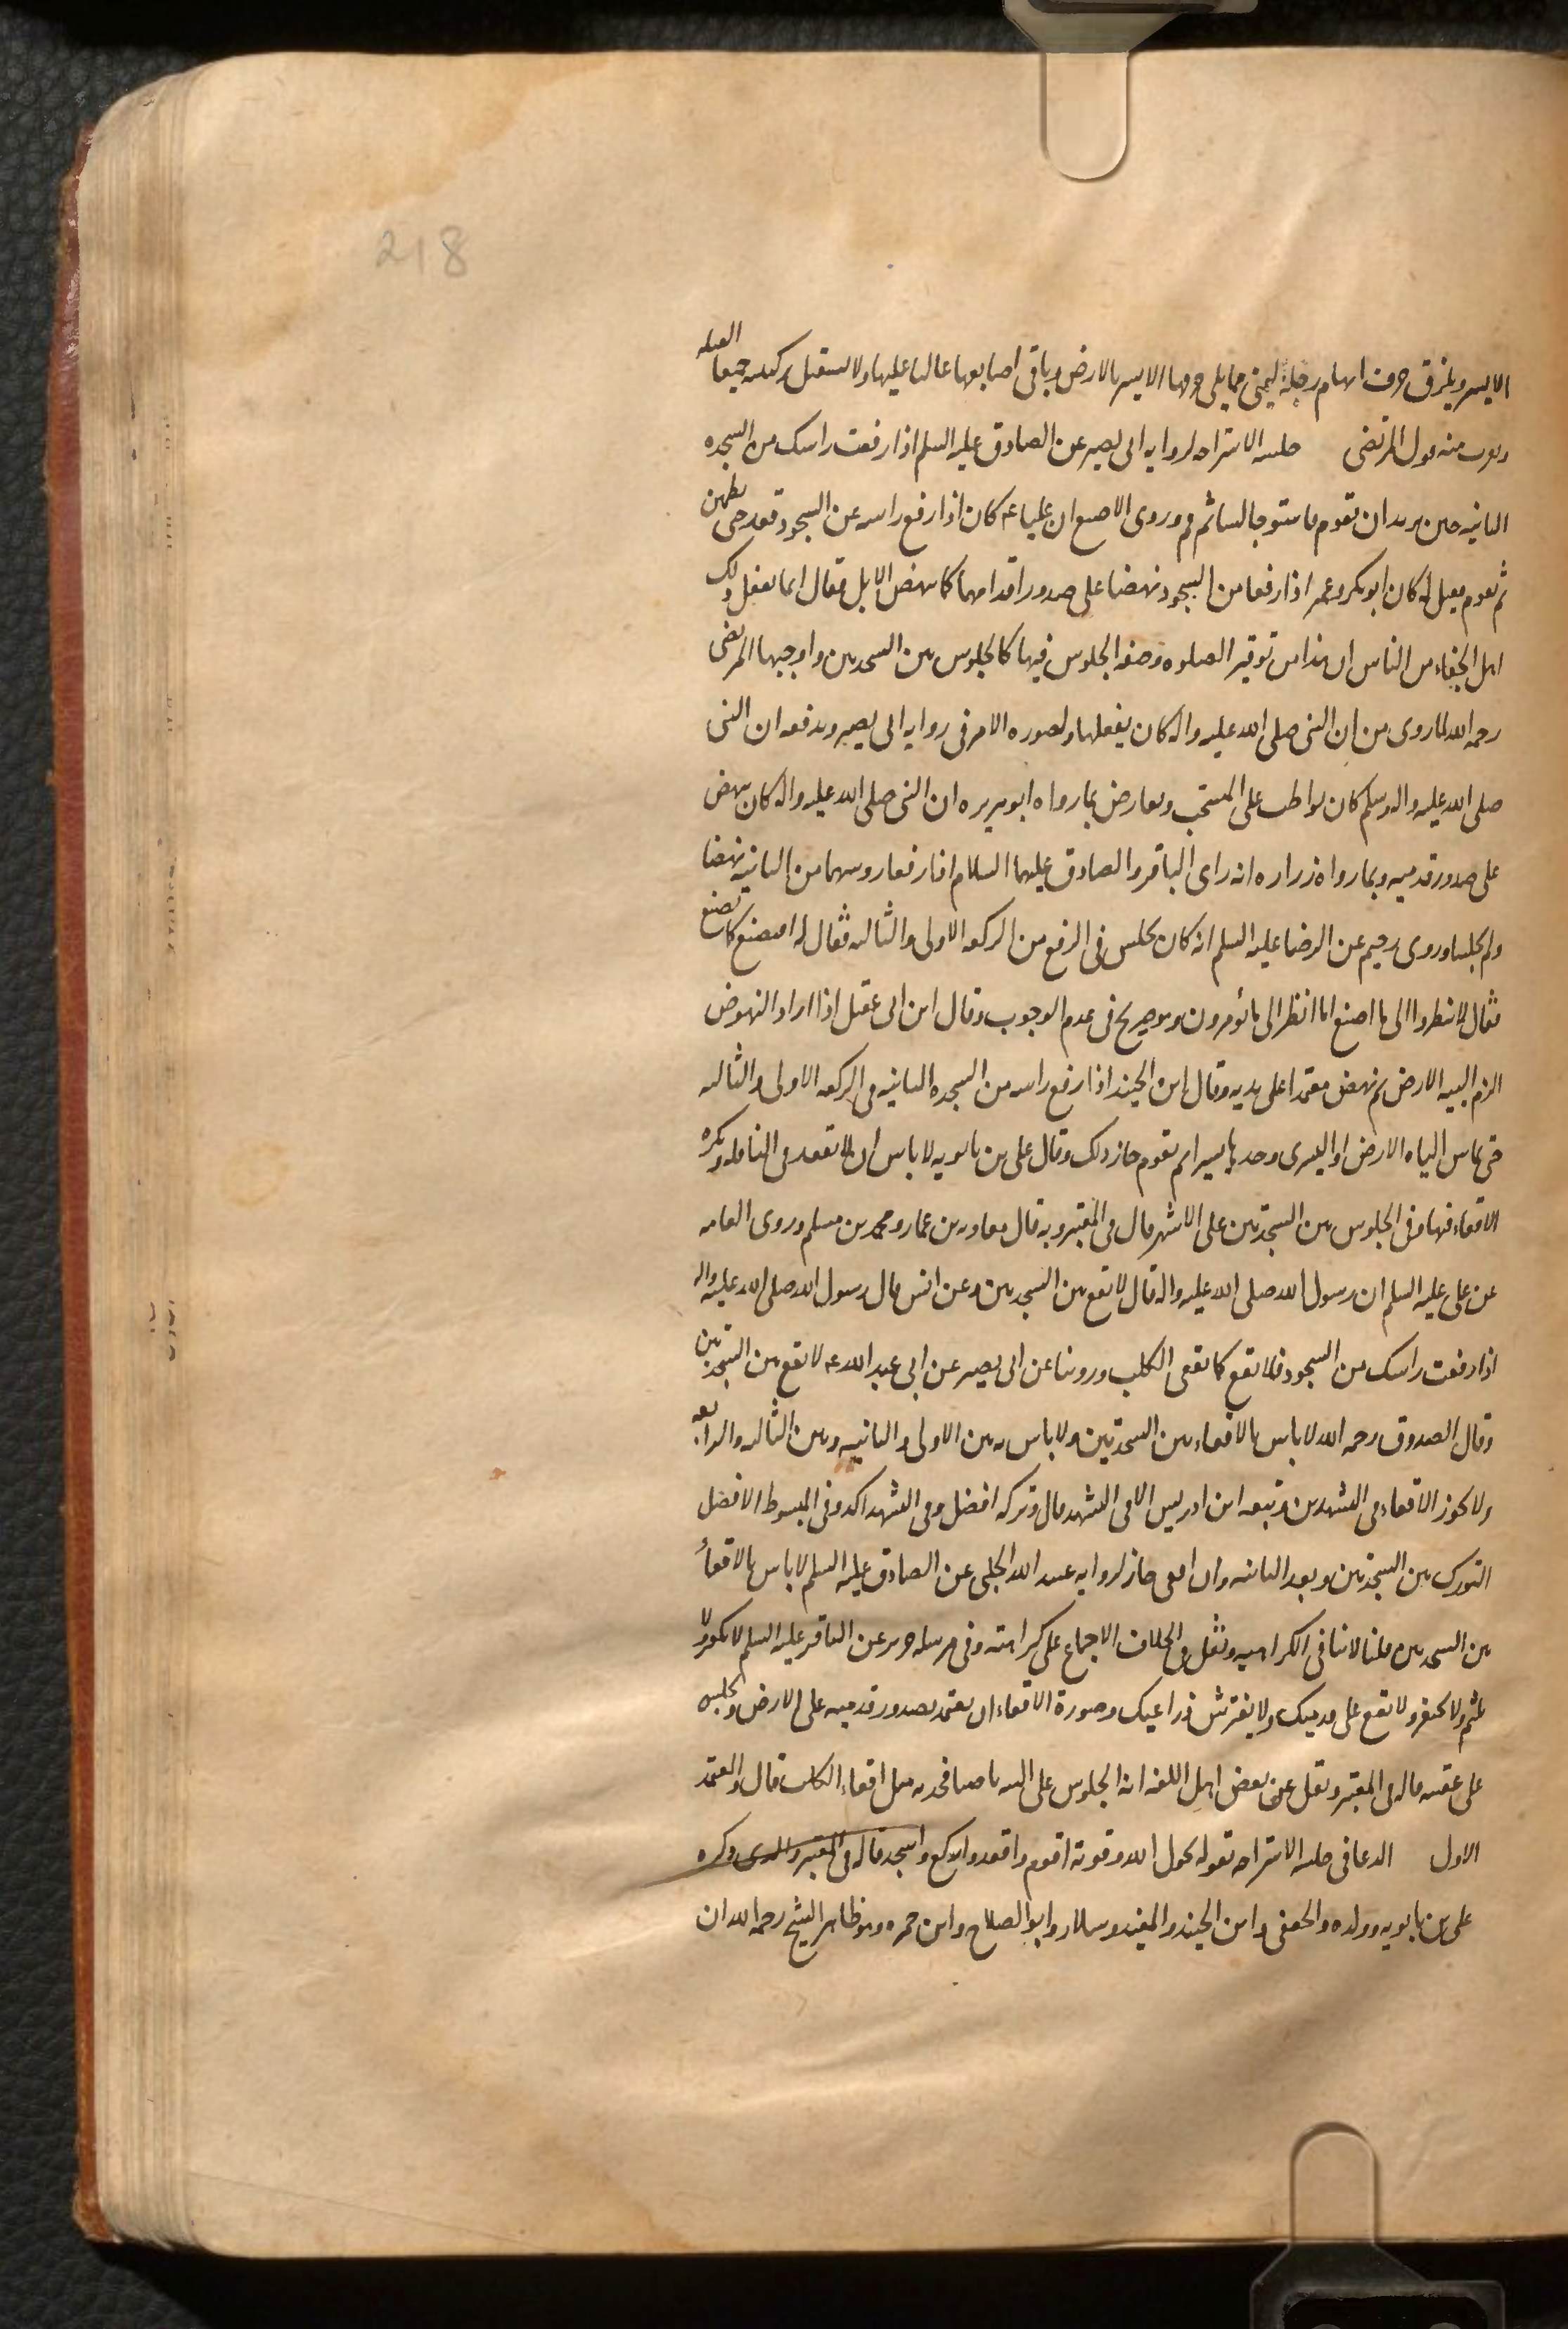 218
الايسر ويلزق حرف ابهام رجله اليمنى مما يلى حرفها الايسر بالارض وباقى اصابعها عاليا عليها ولا يستقبل بركبتيه جميعا القبله
ويقرب منه قول المرتضى جلسه الاستراحه لروايه ابى بصير عن الصادق عليه السلم اذا رفعت راسك من السجده
الثانيه حين تريد ان تقوم فاستو جالسا ثم قم وروى الاصبغ ان عليا عه كان اذا رفع راسه عن السجود قعد حتى يطمئن
ثم يقوم فقيل له كان ابوبكر وعمر اذا رفعا من السجود نهضا على صدور اقدامهما كما ينهض الابل فقال انما يفعل ذلك
اهل الجفاء من الناس ان هذا من توقير الصلوه وصفه الجلوس فيها كالجلوس بين السجدتين واوجبها المرتضى
رحمه الله لما روى من ان النبى صلى الله عليه واله كان يفعلها ولصوره الامر فى روايه ابى بصير ويدفعه ان النبى
صلى الله عليه واله وسلم كان يواظب على المستحب ويعارض بما رواه ابوهريره ان النبى صلى الله عليه واله كان ينهض
على صدور قدميه وبما رواه زراره انه راى الباقر والصادق عليهما السلام اذا رفعا روسهما من الثانيه نهضا
ولم يجلسا وروى رحيم عن الرضا عليه السلم انه كان يجلس فى الرفع من الركعه الاولى والثالثه فقال له افنصنع كما تصنع
فقال لا تنظروا الى ما اصنع انا انظر الى ما تؤمرون وهو صريح فى عدم الوجوب وقال ابن ابى عقيل اذا اراد النهوض
الزم اليتيه الارض ثم نهض معتمدا على يديه وقال ابن الجنيد اذا رفع راسه من السجده الثانيه فى الركعه الاولى والثالثه
حتى يماس الياه الارض او اليسرى وحدها يسيرا ثم يقوم جاز ذلك وقال على بن بابويه لا باس ان لا تقعد فى النافله ويكره
الاقعاء فيها وفى الجلوس بين السجدتين على الاشهر قال فى المعتبر وبه قال معاويه بن عمار ومحمد بن مسلم وروى العامه
عن على عليه السلم ان رسول الله صلى الله عليه واله قال لا تقع بين السجدتين وعن انس قال رسول الله صلى الله عليه واله
اذا رفعت راسك من السجود فلا تقع كما يقعى الكلب وروينا عن ابى بصير عن ابى عبد الله عه لا تقع بين السجدتين
وقال الصدوق رحمه الله لا باس بالاقعاء بين السجدتين ولا باس به بين الاولى والثانيه وبين الثالثه والرابعه
ولا يجوز الاقعاء فى التشهدين وتبعه ابن ادريس الا فى التشهد قال وتركه افضل وفى التشهد اكد وفى المبسوط الافضل
التورك بين السجدتين وبعد الثانيه وان اقعى جاز لروايه عبيد الله الحلبى عن الصادق عليه السلم لا باس بالاقعأ
بين السجدتين قلنا لا تنافى الكراهيه ونقل فى الخلاف الاجماع على كراهته وفى مرسله حريز عن الباقر عليه السلم لا تكفر ولا
تلثم ولا تحتفز ولا تقع على قدميك ولا يفترش ذراعيك وصورة الاقعاء ان يعتمد بصدور قدميه على الارض ويجلس
على عقبيه قاله فى المعتبر ونقل عن بعض اهل اللغه انه الجلوس على اليتيه ناصبا فخذيه مثل اقعاء الكلب قال والمعتمد
الاول الدعا فى جلسه الاستراحه بقوله بحول الله وقوته اقوم واقعد واركع واسجد قاله فى المعتبر والذى ذكره
على بن بابويه وولده والجعفى وابن الجنيد والمفيد وسلار وابو الصلاح وابن حمزه وهو ظاهر الشيخ رحمه الله ان